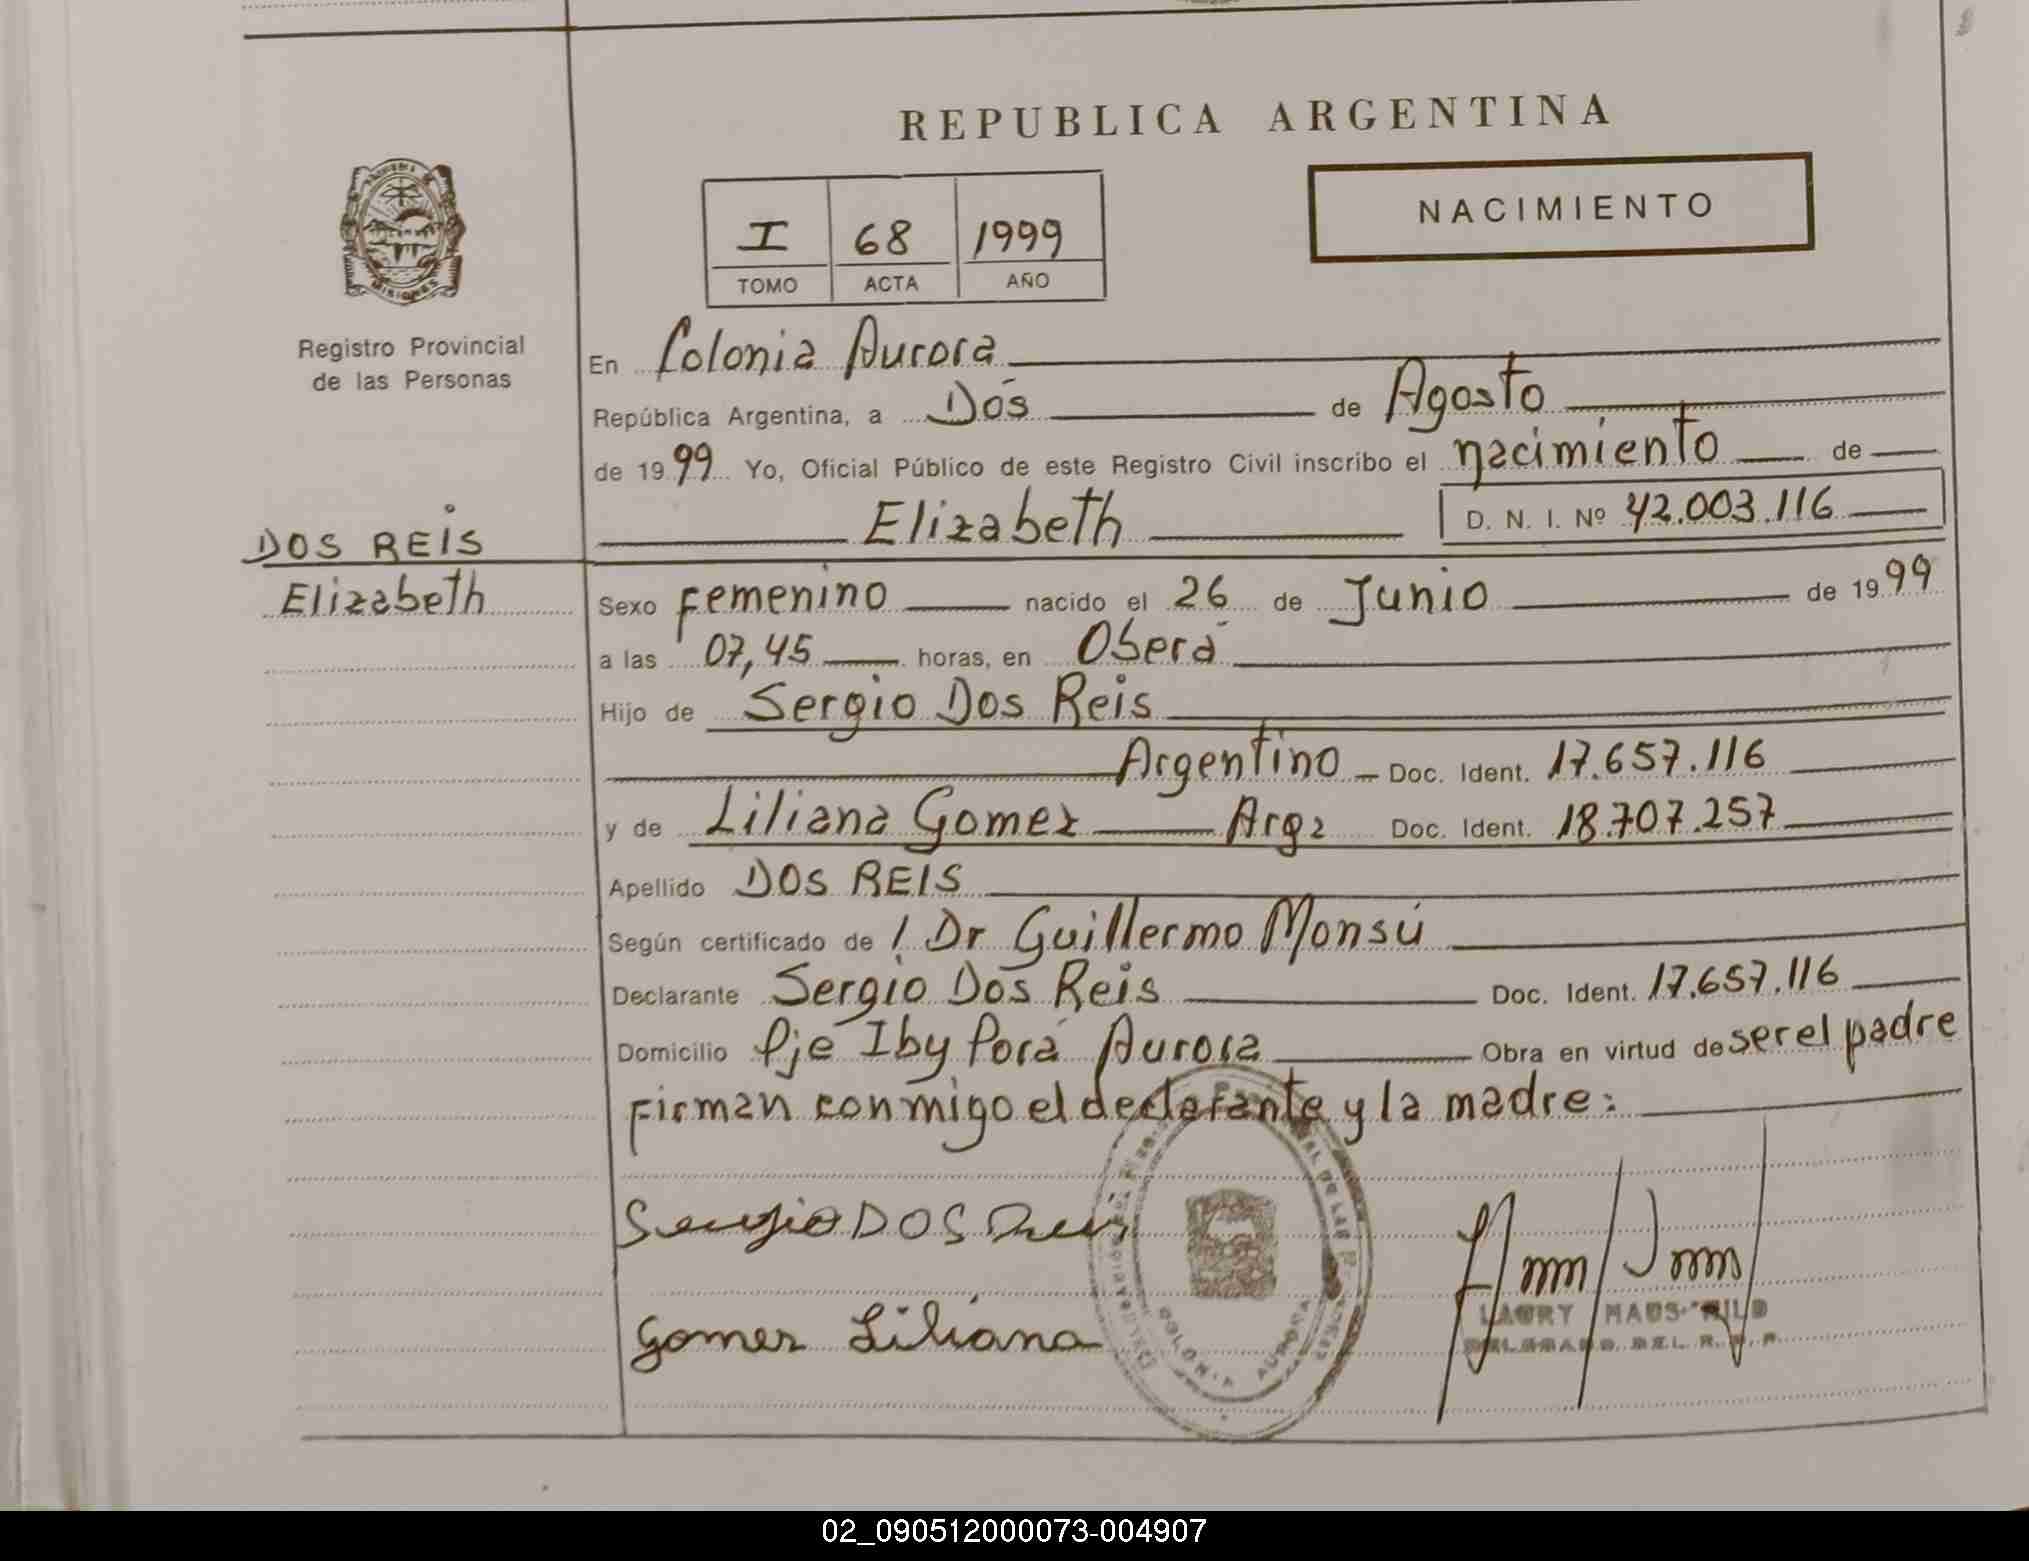 REPUBLICA ARGENTINA
NACIMIENTO
I 68 1999
TOMO ACTA AÑO
MISIONES
Registro Provincial
de las Personas
En Colonia Aurora
República Argentina, a Dós de Agosto
de 1999 Yo, Oficial Público de este Registro Civil inscribo el nacimiento de
Elizabeth D. N. I. Nº 42.003.116
DOS REIS
Elizabeth
Sexo Femenino nacido el 26 de Junio de 1999
a las 07,45 horas, en Oberá
Hijo de Sergio Dos Reis
Argentino Doc. Ident. 17.657.116
y de Liliana Gomez Arga Doc. Ident. 18.707.257
Apellido DOS REIS
Según certificado de / Dr Guillermo Monsú
Declarante Sergio Dos Reis Doc. Ident. 17.657.116
Domicilio Pje Iby Porá Aurora Obra en virtud de ser el padre
Firman conmigo el declarante y la madre:
Sergio DOS Reis
Gomez Liliana
COLONIA AURORA
LAURY
DELEGADO DEL R. P. P.
02_090512000073-004907